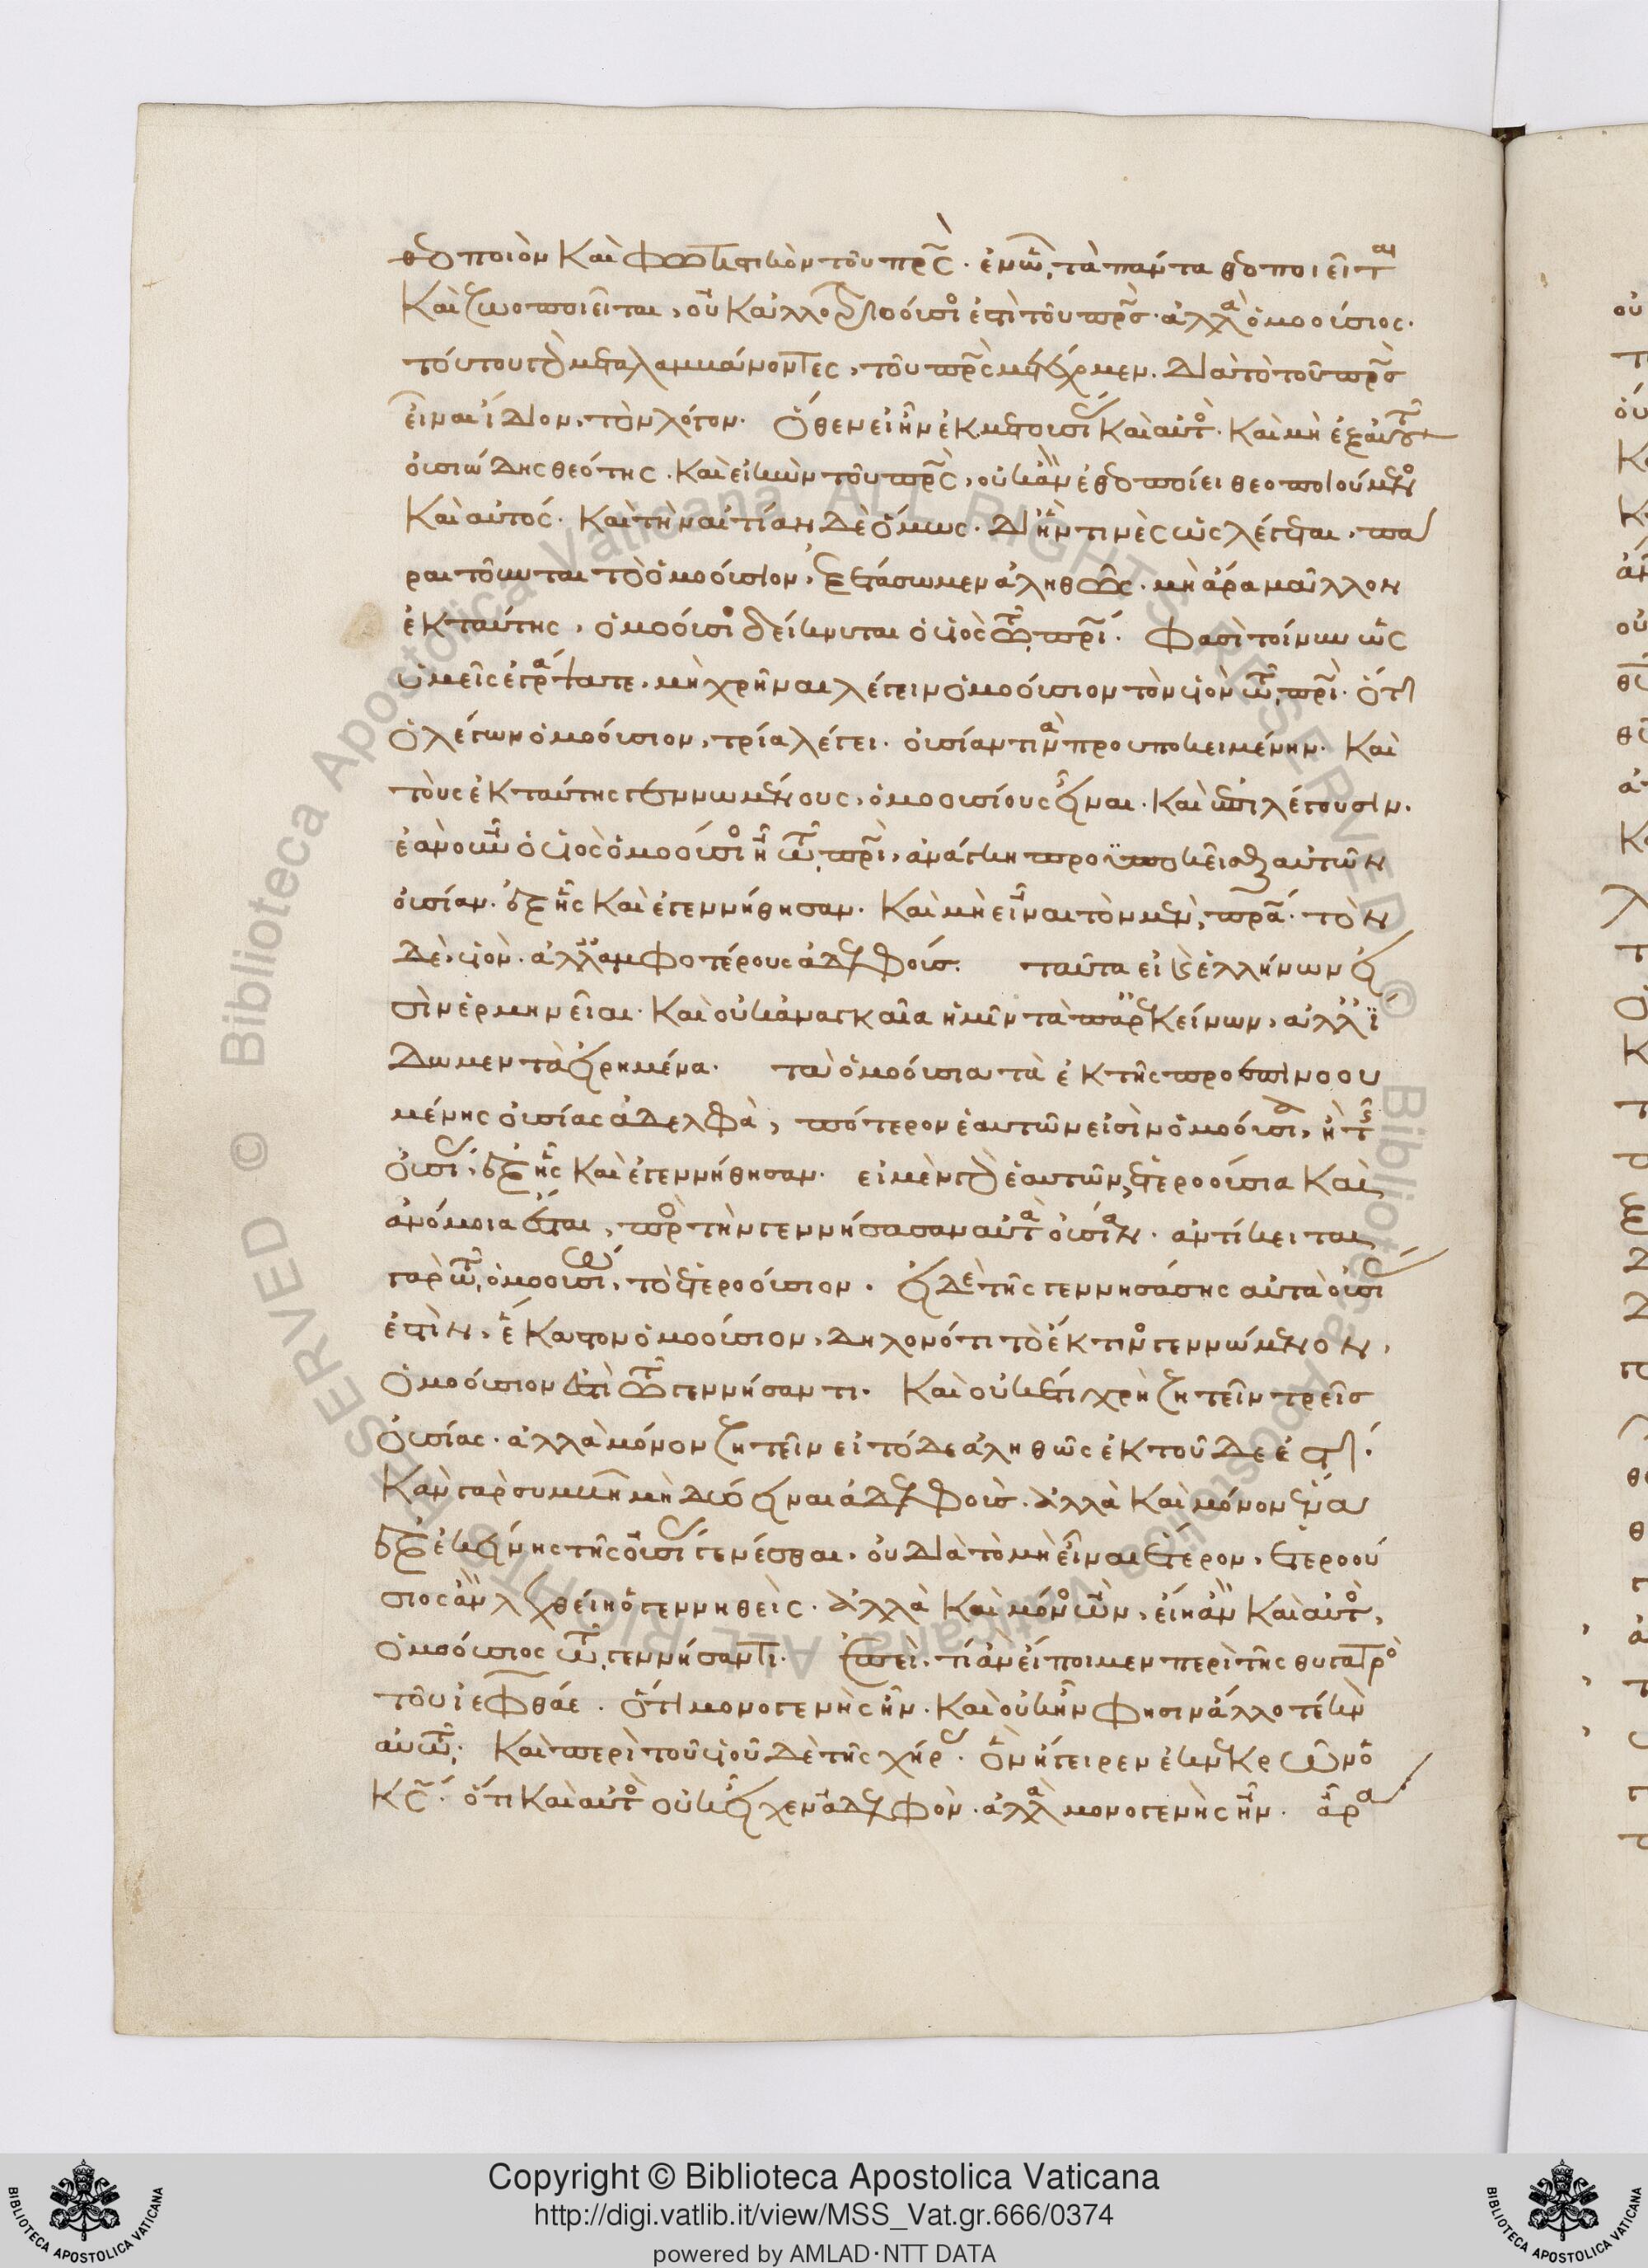 θεοποιὸν καὶ φωτιστικὸν τοῦ πρς̀· ἐν ὧ, τὰ πάντα θεοποιεῖται
καὶ ζωοποιεῖται, οὐκ ἀλλοτριοούσιος ἐστὶ τοῦ πρς· ἀλλὰ ὁμοούσιος·
τούτου γὰρ μεταλαμβάνοντες, τοῦ πρς̀ μετέχομεν. διὰ τὸ τοῦ πρς̀
εἶναι ἴδιον, τὸν λόγον. ὅθεν εἰ ἦν ἐκ μετουσίας καὶ αὐτὸς· καὶ μὴ ἐξ αὐτοῦ
οὐσιώδης θεότης· καὶ εἰκὼν τοῦ πρς̀, οὐκ ἂν ἐθεοποίει θεοποιούμενος
καὶ αὐτός. καὶ τὴν αἰτίαν δὲ ὅμως· δι' ἣν τινὲς ὡς λέγεται, πα
ραιτοῦνται τὸ ὁμοούσιον, ἐξετάσωμεν ἀληθῶς· μὴ ἄρα μᾶλλον
ἐκ ταύτης, ὁμοούσιος δείκνυται ὁ υἱὸς τῶ πρί. φασὶ τοίνυν ὡς
ὑμεῖς ἐγράψατε, μὴ χρῆναι λέγειν ὁμοούσιον τὸν υἱὸν τῶ πρί· ὅτι
ὁ λέγων ὁμοούσιον, τρία λέγει· οὐσίαν τινὰ προυποκειμένην· καὶ
τοὺς ἐκ ταύτης γεννωμένους, ὁμοουσίους εἶναι· καὶ ἐπιλέγουσιν·
ἐὰν οὖν ὁ υἱὸς ὁμοούσιος ἦ τῶ πρί, ἀνάγκη προϋποκεῖσθαι αὐτῶν
οὐσίαν· ἐξ ἧς καὶ ἐγεννήθησαν· καὶ μὴ εἶναι τὸν μὲν, πρα· τὸν
δὲ, υἱόν· ἀλλ' ἀμφοτέρους ἀδελφούς. ταῦτα εἰ καὶ ἑλλήνων εἰ
σὶν ἑρμηνεῖαι· καὶ οὐκ ἀναγκαῖα ἡμῖν τὰ παρ' ἐκείνων, ἀλλ' ἴ
δωμεν τὰ εἰρημένα. τὰ ὁμοούσια τὰ ἐκ τῆς προεπινοου
μένης οὐσίας ἀδελφὰ, πότερον ἑαυτῶν εἰσὶν ὁμοούσια, ἢ τῆς
οὐσίας, ἐξ ἧς καὶ ἐγεννήθησαν· εἰ μὲν γὰρ ἑαυτῶν, ἑτεροούσια καὶ
ἀνόμοια ἔσται, πρὸς τὴν γεννήσασαν αὐτὰ οὐσίαν· ἀντίκειται
γὰρ τῶ, ὁμοουσίω, τὸ ἑτεροούσιον. εἰ δὲ τῆς γεννησάσης αὐτὰ οὐσίας
ἐστὶν, ἕκαστον ὁμοούσιον, δηλονότι τὸ ἔκ τινος γεννώμενον,
ὁμοούσιον ἐστὶ τῶ γεννήσαντι. καὶ οὐκέτι χρὴ ζητεῖν τρεῖς
οὐσίας· ἀλλὰ μόνον ζητεῖν εἰ τόδε ἀληθῶς ἐκ τοῦδε ἐστί·
κἂν γὰρ συμβῆ μὴ δύο εἶναι ἀδελφούς· ἀλλὰ καὶ μόνον ἕνα
ἐξ ἐκείνης τῆς οὐσίας γενέσθαι, οὐ διὰ τὸ μὴ εἶναι ἕτερον, ἑτεροού
σιος ἂν λεχθείη ὁ γεννηθεὶς· ἀλλὰ καὶ μόνος ὢν, εἴη ἂν καὶ αὐτὸς,
ὁμοούσιος τῶ, γεννήσαντι. ἐπεὶ, τί ἂν εἴποιμεν περὶ τῆς θυγατρὸς
τοῦ ἰεφθάε· ὅτι μονογενὴς ἦν· καὶ οὐκ ἦν φησὶν ἄλλο τέκνον
αὐτῶ. καὶ περὶ τοῦ υἱοῦ δὲ τῆς χήρας· ὃν ἤγειρεν ἐκ νεκρῶν ὁ
κς· ὅτι καὶ αὐτὸς οὐκ εἶχεν ἀδελφὸν· ἀλλὰ μονογενὴς ἦν· ἆρα
Copyright © Biblioteca Apostolica Vaticana
http://digi.vatlib.it/view/MSS_Vat.gr.666/0374
powered by AMLAD·NTT DATA